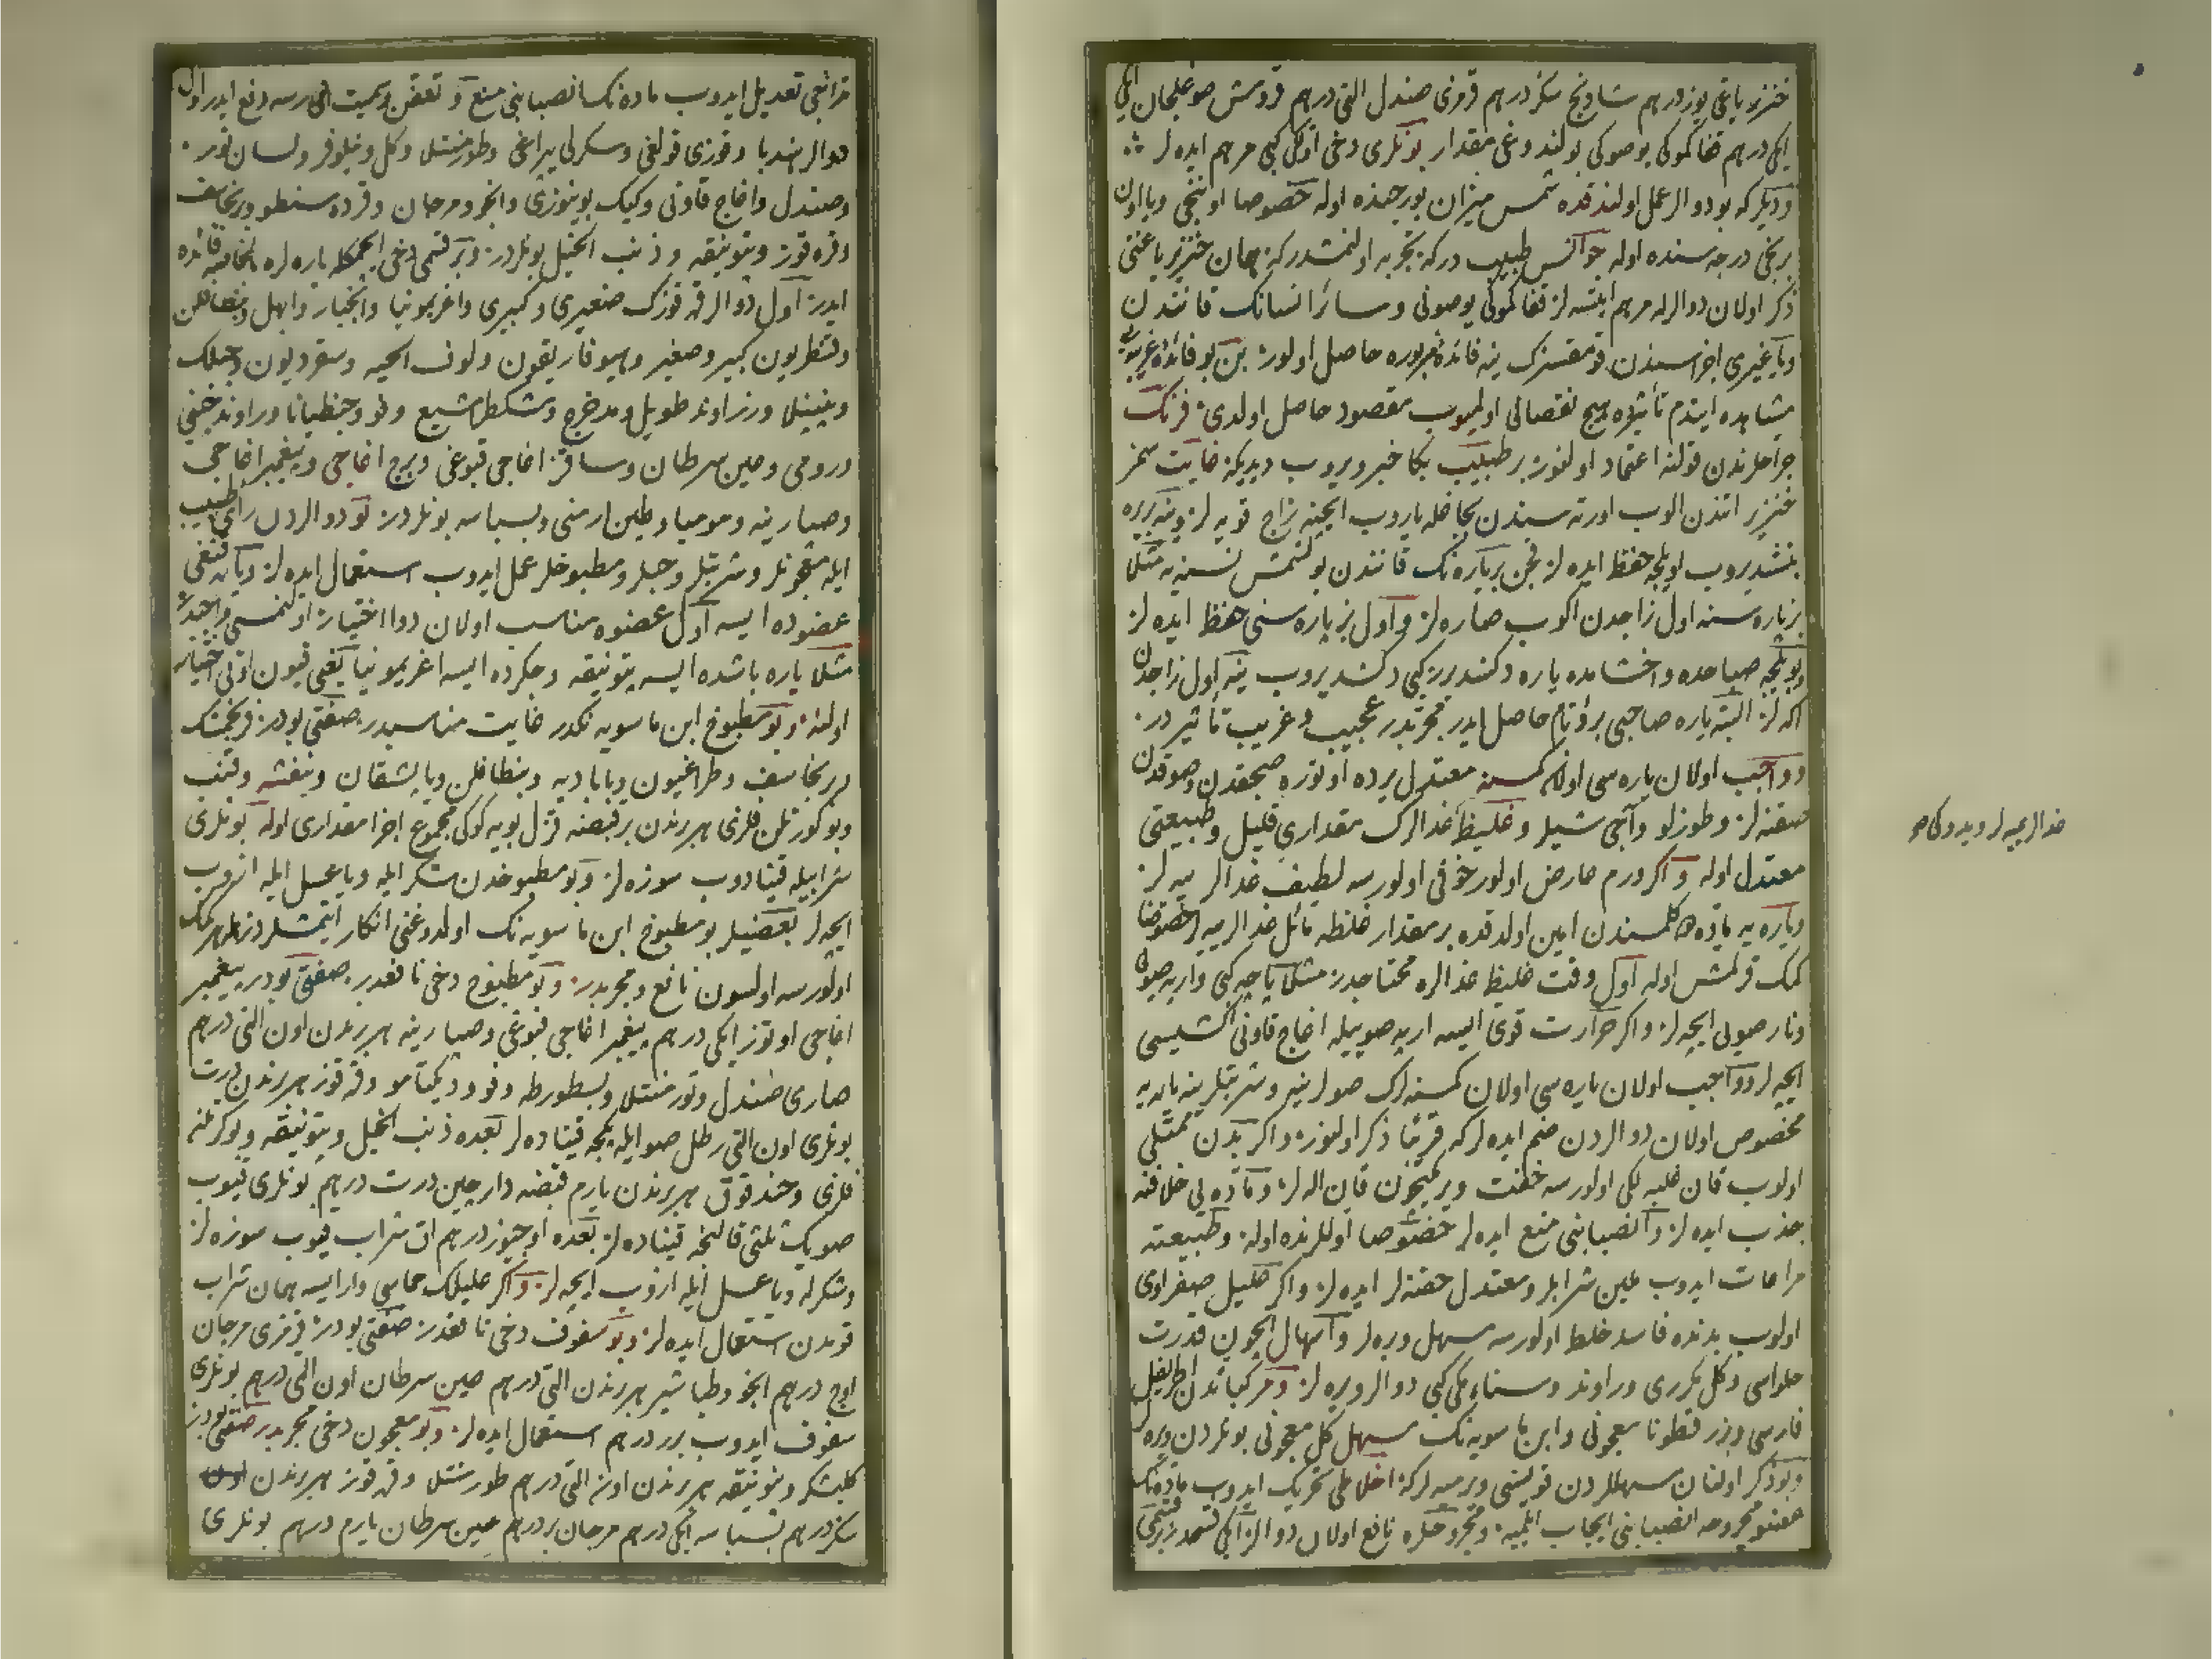 خنزیر یاغی یوز درهم شادنج سکز درهم قرمزی صندل التی درهم قورمش صوغلجان ایکی
ایکی درهم قفا کموکی یوصوکی بولندوغی مقدار بونلری دخی اولکی کبی مرهم ایده لر
ودیرکه بو دوالر عمل اولندقده شمس میزان بورجنده اوله خصوصا اوننجی ویا اون
برنجی درجه سنده اوله جوانس طبیب درکه تجربه اولنمشدرکه همان خنزیر یاغنی
ذکر اولان دوالرله مرهم ایتسه لر قفا کموکی یوصونی وسائر انسانک قانندن
ویا غیری اجزاسندن قومقسزک ینه فائدهٔ مزبوره حاصل اولور بن بو فائدهٔ غریبه‌یی
مشاهده ایتدم تأثیرده هیچ نقصانی اولمیوب مقصود حاصل اولدی فرنک
جراحلرندن قولنه اعتماد اولنور بر طبیب بکا خبر ویروب دیدیکه غایت سمز
خنزیر اتندن الوب اورته سندن بچاغله یاروب ایچینه زاج قویه لر وینه بربره
بتشدیروب اویلجه حفظ ایده لر قچن بر یاره نک قانندن بولشمش نسنه یه مثلا
بز پاره سنه اول زاجدن اکوب صاره لر واول بز پاره سنی حفظ ایده لر
وبویلجه صباحده واخشامده یاره دکشدیرر کبی دکشدیروب ینه اول زاجدن
اکه لر البته یاره صاحبی برؤ تام حاصل ایدر مجربدر عجیب وغریب تأثیردر
وواجب اولان یاره سی اولان کمسنه معتدل یرده اوتوره صیجقدن وصوقدن
صقنه لر وطوزلو واجی شیلر وغلیظ غدالرک مقداری قلیل وطبیعتی
معتدل اوله واکر ورم عارض اولور خوفی اولورسه لطیف غدالر ییه لر
ویاره یه ماده کلمسندن امین اولدقده بر مقدار غلظه مائل غدالر ییه لر خصوصا
کمک قرلمش اوله اول وقت غلیظ غدالره محتاجدر مثلا پاچه کبی وارپه صویی
ونار صویی ایچه لر واکر حرارت قوی ایسه ارپه صوییله اغاج قاونی اکشیسی
ایچه لر وواجب اولان یاره سی اولان کمسنه لرک صولرینه وشربتلرینه یاره یه
مخصوص اولان دوالردن ضم ایده لر که قریبا ذکر اولنور واکر بدن ممتلی
اولوب قان غلبه لکی اولورسه خفت ویرمکیچون قان اله لر وماده یی خلافنه
جذب ایده لر وانصبابنی منع ایده لر خصوصا اوللرنده اوله وطبیعته
مراعات ایدوب ملین شرابلر ومعتدل حقنه لر ایده لر واکر علیل صفراوی
اولوب بدنده فاسد خلط اولورسه مسهل ویره لر واسهال ایچون قدرت
حلواسی وکل مکرری وراوند وسناء مکی کبی دوالر ویره لر ومرکباتدن اطریفل
فارسی وبزر قطونا معجونی وابن ما سویه نک مسهل کل معجونی بونلردن ویره لر
وبو ذکر اولنان مسهللردن قویسنی ویرمیه لر که اخلاطی تحریک ایدوب ماده نک
عضو مجروحه انصبابنی ایجاب ایلمیه ومجروحلره نافع اولان دوالر ایکی قسمدر بر قسمی
غدالر ییه لر ویدوکی صو
مزاجی تعدیل ایدوب ماده نک انصبابنی منع وتعفن وسمیت ایرسه دفع ایدر اول
دوالر هندبا وقوزی قولاغی وسکرلی یپراغی وطورمنتلا وکل ونیلوفر ولسان ثور
وصندل واغاج قاونی وکیک بوینوزی وانجو ومرجان وقرده سنطو وبرنجاسف
وقره قوز وبتونیقه وذنب الخیل بونلردر وبر قسمی دخی ایچمکله یاره لره بالخاصه فائده
ایدر اول دوالر قره قوزک صغیری وکبیری واغریمونیا وانجبار وابهل وبنطافلن
وقنطریون کبیر وصغیر وهیوفاریقون ولوف الحیه وسقردیون وجبلک
وپنپنلا وزراوند طویل ومدحرج ومشکطرامشیع وفو وجنطیانا وراوند چینی
ورومی وعین سرطان وساقز اغاجی قبوغی وبرج اغاجی وپیغمبر اغاجی
وصبارینه ومومیا وطین ارمنی وبسباسه بونلردر بو دوالردن رأی طبیب
ایله معجونلر وشربتلر وحبلر ومطبوخلر عمل ایدوب استعمال ایده لر ویاره قنغی
عضوده ایسه اول عضوه مناسب اولان دوا اختیار اولنمسی واجبدر
مثلا یاره باشده ایسه بتونیقه وجکرده ایسه اغریمونیا یعنی قیون اوتی اختیار
اولنه وبو مطبوخ ابن ما سویه نکدر غایت مناسبدر صفتی بودر فرنجمشک
وبرنجاسف وطراغیون وبابادیه وبنطافلن ویا پشقان وبنفشه وقنب
وبوکورتلن فلزی هر برندن بر قبضه قزل بویه کوکی مجموع اجزا مقداری اوله بونلری
شرابیله قینادوب سوزه لر وبو مطبوخدن شکر ایله ویا عسل ایله ازوب
ایچه لر بعضیلر بو مطبوخ ابن ما سویه نک اولدوغنی انکار ایتمشلردر هر کمک
اولورسه اولسون نافع ومجربدر وبو مطبوخ دخی نافعدر صفتی بودر پیغمبر
اغاجی اوتوز ایکی درهم پیغمبر اغاجی قبوغی وصبارینه هر برندن اون التی درهم
صاری صندل وتورمنتلا وبسطورطه وفو ودیکتامو وقره قوز هر برندن درت
بونلری اون التی رطل صو ایله کیجه قیناده لر بعده ذنب الخیل وبتونیقه وبوکرتلن
فلزی وحندقوق هر برندن یارم قبضه دارچین درت درهم بونلری قیوب
صویک ثلثی قالنجه قیناده لر بعده اوچیوز درهم اق شراب قیوب سوزه لر
وشکرله ویا عسل ایله ازوب ایچه لر واکر علیلک حماسی وار ایسه همان شراب
قومدن استعمال ایده لر وبو سفوف دخی نافعدر صفتی بودر قرمزی مرجان
اوچ درهم انجو وطباشیر هر برندن التی درهم عین سرطان اون التی درهم بونلری
سفوف ایدوب برر درهم استعمال ایده لر وبو معجون دخی مجربدر صفتی بودر
کلبشکر وبتونیقه هر برندن اون التی درهم طورمنتلا وقره قوز هر برندن اون
سکز درهم بسباسه ایکی درهم مرجان بر درهم عین سرطان یارم درهم بونلری